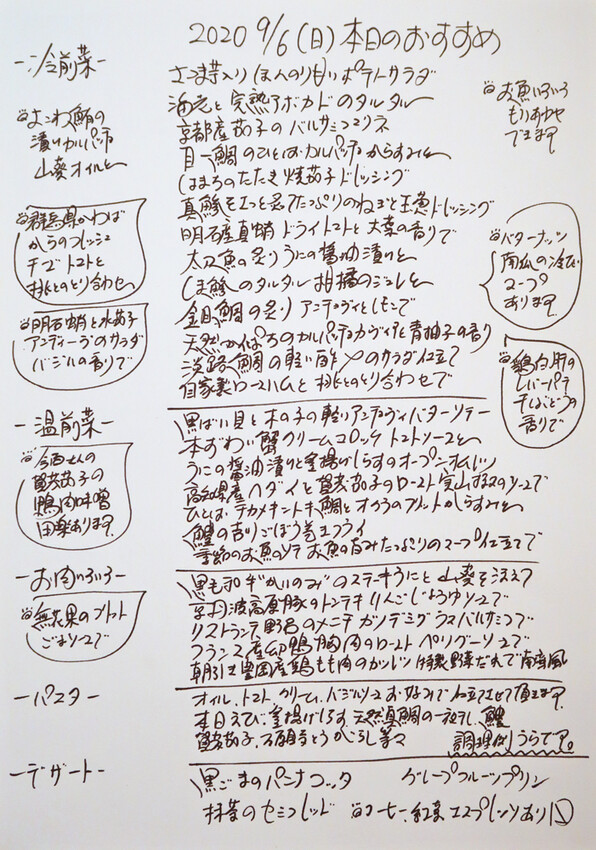 2020 9/6(日)本日のおすすめ
-冷前菜-
さつま芋入りほんのり甘いポテトサラダ
海老と完熟アボカドのタルタル
京都産茄子のバルサミコマリネ
目一鯛のひとはだカルパッチョからすみと
はまちのたたき焼茄子ドレッシング
真鯵を玉ねぎドレッシング
明石産真蛸ドライトマトと大葉の香りで
太刀魚の炙りうにの醤油漬けと
しま鯵のタルタル柑橘のジュレと
金目鯛の炙りアンチョヴィとレモンで
天然かんぱちのカルパッチョカヴィアと青柚子の香り
淡路鯛の軽い酢〆のサラダ仕立て
自家製ロースハムと桃とのとり合わせで
よこわ鮪の
漬けカルパッチョ
山葵オイルと
群馬県かわば
からのフレッシュ
チーズトマトと
桃とのとり合わせ
明石蛸と水茄子
アンディーブのサラダ
バジルの香りで
お魚いろいろ
もりあわせ
できます。
バターナッツ
南瓜の冷たい
スープ
あります。
鶏白肝の
レバーパテ
干しぶどうの
香りで
-温前菜-
黒ばい貝と木の子の軽いアンチョヴィバターソテー
本ずわい蟹クリームコロッケトマトソースと
うにの醤油漬けと釜揚げしらすのオープンオムレツ
高知県産ヘダイと賀茂茄子のロースト実山椒のソースで
鯛とオクラのフリットからすみと
鱧の吉りごぼう巻きフライ
季節のお魚のソテーお魚の旨みたっぷりのスープ仕立てで
賀茂茄子の
鴨肉味噌
田楽あります。
-お肉いろいろ-
黒毛和牛"かいのみ"のステーキうにと山葵を添えて
京丹波高原豚のトンテキりんごじょうゆソースで
リストランテ野呂のメンチカツデミグラスバルサミコで
フランス産鴨胸肉のローストペリグーソースで
朝引き豊岡産鶏もも肉のカツレツ特製野菜だれで南蛮風
無花果のフリット
ごまソースで
-パスタ-
オイル、トマト、クリーム、バジルソースお好みで仕立させて頂きます。
本日えび、釜揚げしらす、天然真鯛の一夜干し、鱧
賀茂茄子、万願寺とうがらし等々
調理例うらです。
-デザート-
黒ごまのパンナコッタ グレープフルーツプリン
抹茶のセミフレッド コーヒー、紅茶、エスプレッソあり